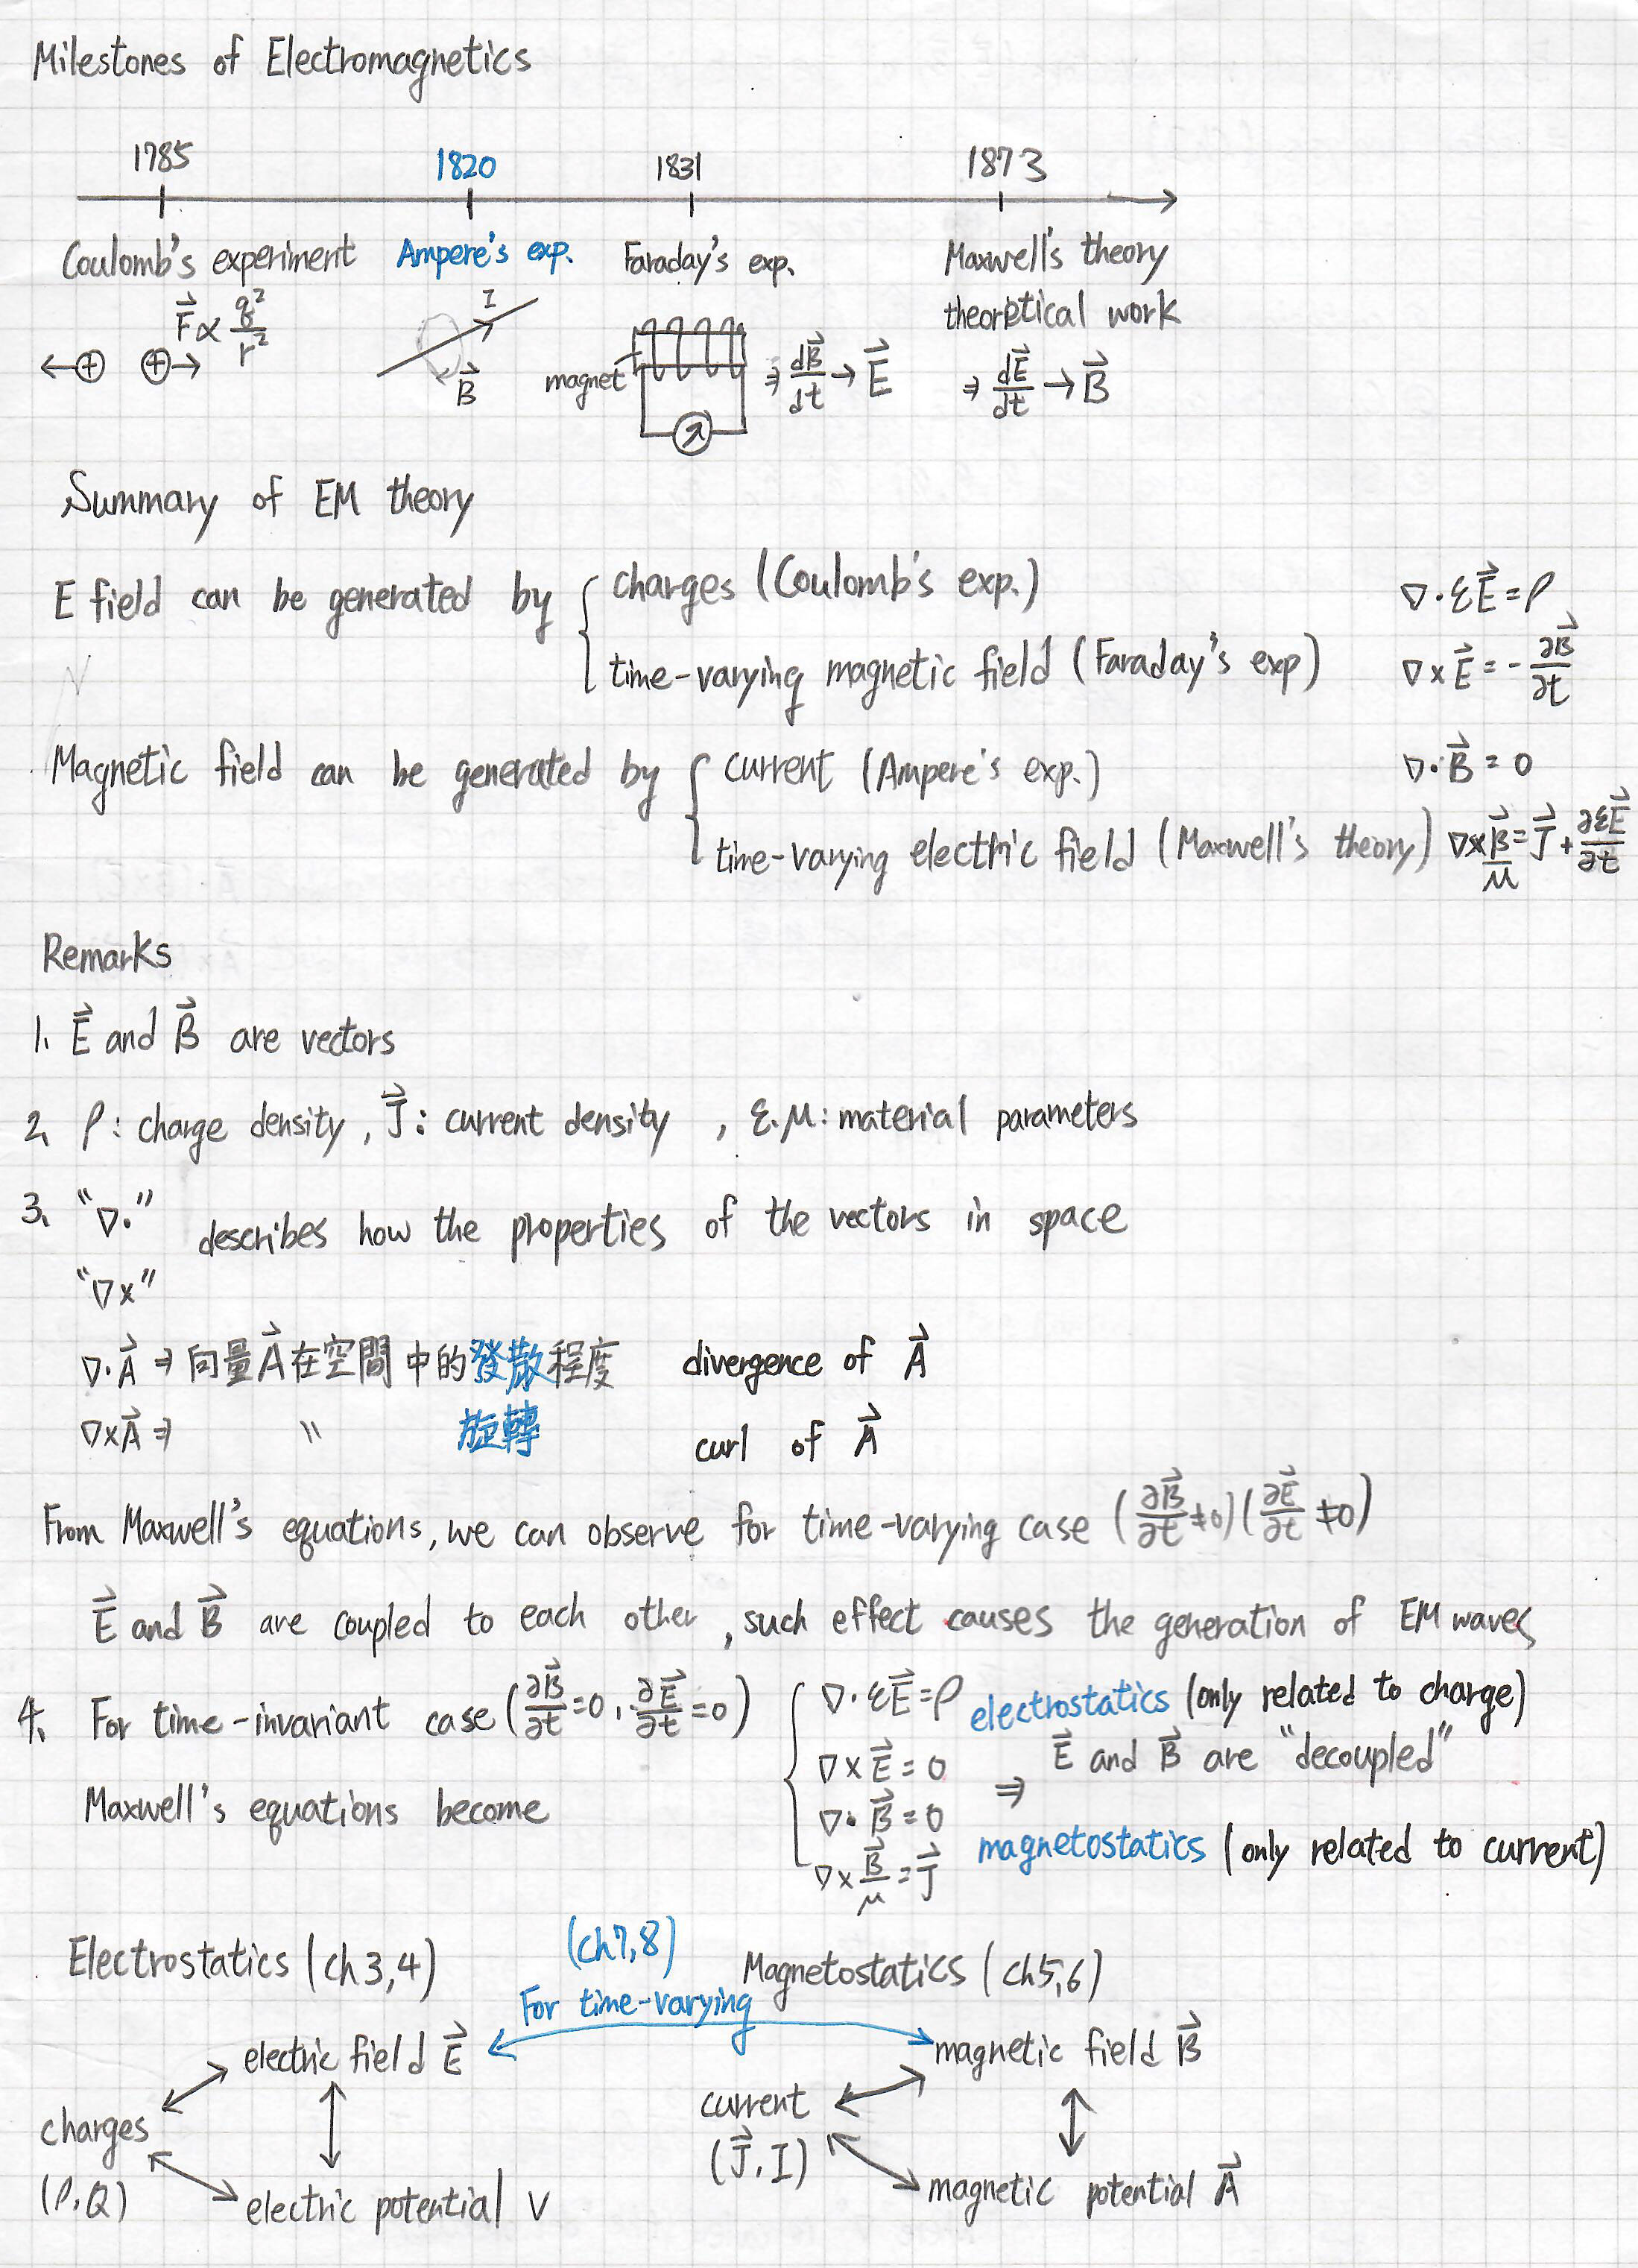 Milestones of Electromagnetics
1785 1820 1831 1873
Coulomb's experiment Ampere's exp. Faraday's exp. Maxwell's theory
F⃗ ∝ q²/r² I theoretical work
⊕ ⊕ B⃗ magnet ⇒ dB⃗/dt → E⃗ ⇒ dE⃗/dt → B⃗
Summary of EM theory
E field can be generated by { charges (Coulomb's exp.) ∇·εE⃗ = ρ
time-varying magnetic field (Faraday's exp) ∇×E⃗ = -∂B⃗/∂t
Magnetic field can be generated by { current (Ampere's exp.) ∇·B⃗ = 0
time-varying electric field (Maxwell's theory) ∇×B⃗/μ = J⃗ + ∂εE⃗/∂t
Remarks
1. E⃗ and B⃗ are vectors
2. ρ: charge density, J⃗: current density, ε.μ: material parameters
3. "∇·" describes how the properties of the vectors in space
"∇×"
∇·A⃗ ⇒ 向量A⃗在空間中的發散程度 divergence of A⃗
∇×A⃗ ⇒ 〃 旋轉 curl of A⃗
From Maxwell's equations, we can observe for time-varying case (∂B⃗/∂t ≠ 0)(∂E⃗/∂t ≠ 0)
E⃗ and B⃗ are coupled to each other, such effect causes the generation of EM waves
4. For time-invariant case (∂B⃗/∂t = 0, ∂E⃗/∂t = 0) { ∇·εE⃗ = ρ electrostatics (only related to charge)
∇×E⃗ = 0 ⇒ E⃗ and B⃗ are "decoupled"
Maxwell's equations become ∇·B⃗ = 0
∇×B⃗/μ = J⃗ magnetostatics (only related to current)
Electrostatics (ch3,4) (ch7,8) Magnetostatics (ch5,6)
For time-varying
electric field E⃗ magnetic field B⃗
charges current
(ρ,Q) (J⃗, I)
electric potential V magnetic potential A⃗